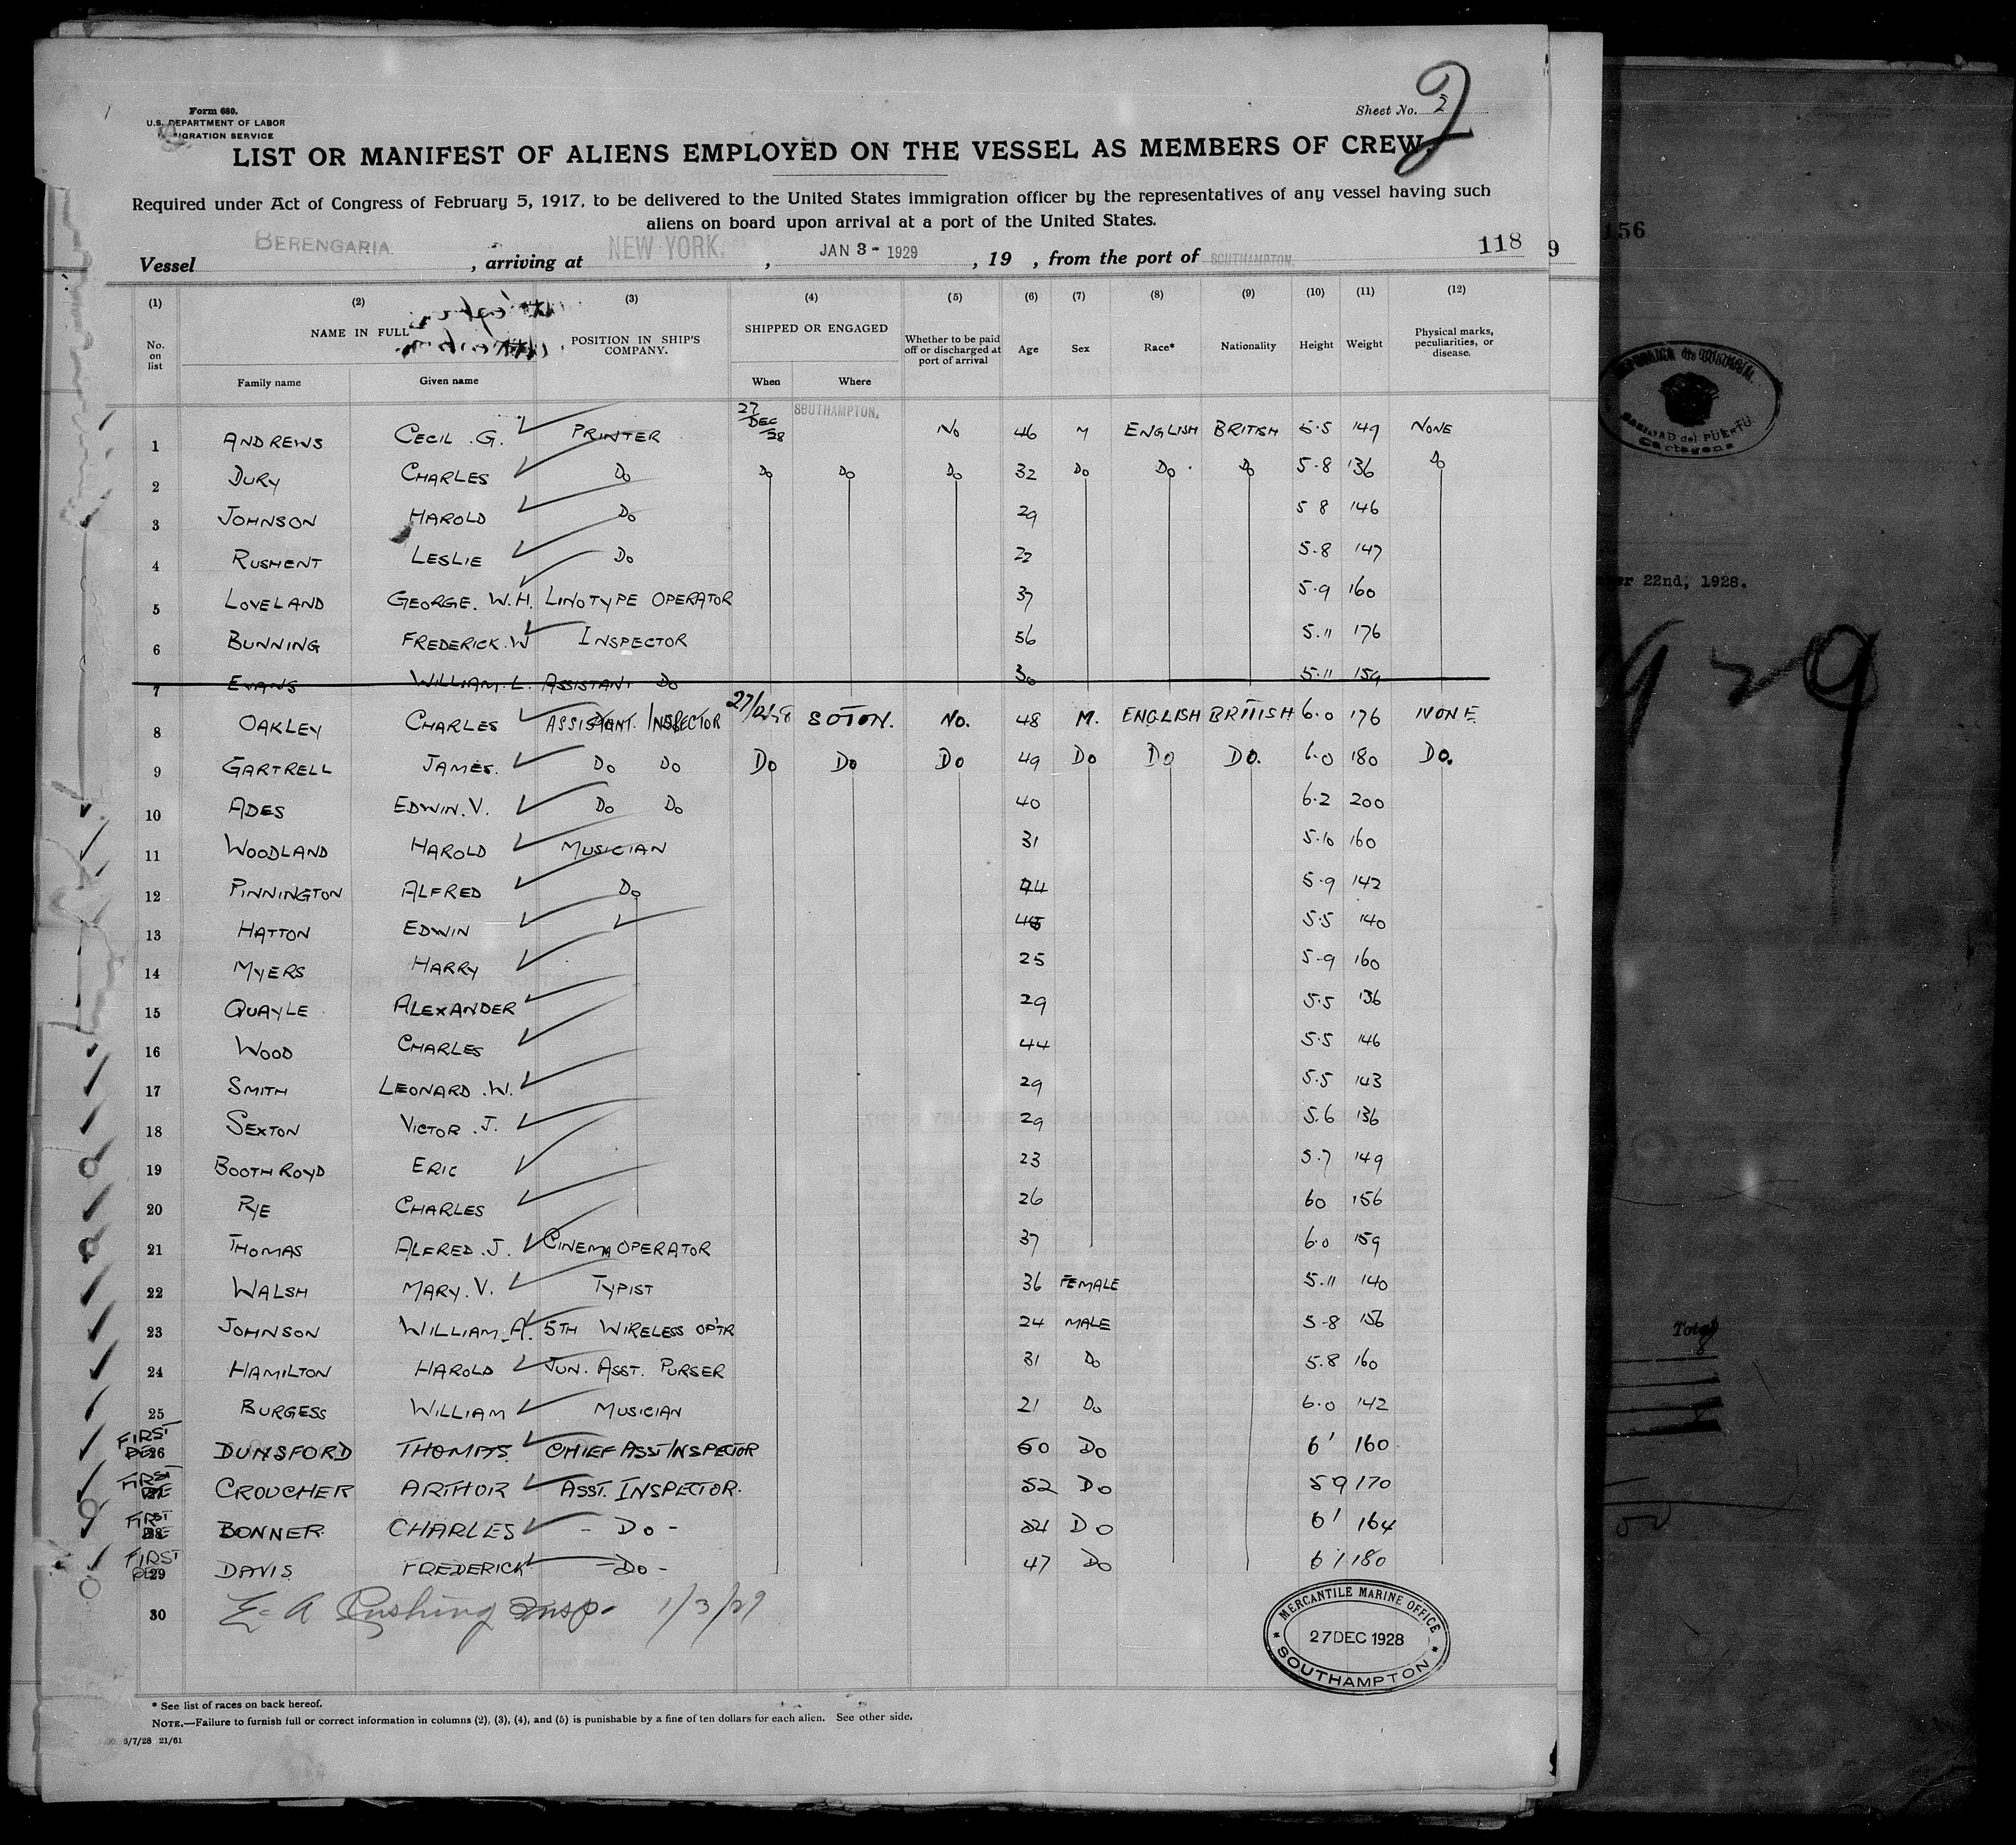 Form 680.
U.S. DEPARTMENT OF LABOR
IMMIGRATION SERVICE
Sheet No. 2
2
LIST OR MANIFEST OF ALIENS EMPLOYED ON THE VESSEL AS MEMBERS OF CREW.
Required under Act of Congress of February 5, 1917, to be delivered to the United States immigration officer by the representatives of any vessel having such
aliens on board upon arrival at a port of the United States.
118
Vessel BERENGARIA , arriving at NEW YORK. , JAN 3 - 1929 , 19 , from the port of SOUTHAMPTON.
(1) (2) (3) (4) (5) (6) (7) (8) (9) (10) (11) (12)
No. on list NAME IN FULL POSITION IN SHIP'S COMPANY. SHIPPED OR ENGAGED Whether to be paid off or discharged at port of arrival Age Sex Race* Nationality Height Weight Physical marks, peculiarities, or disease.
Family name Given name When Where
1 ANDREWS CECIL .G. PRINTER 27 DEC /28 SOUTHAMPTON. NO 46 M ENGLISH BRITISH 5.5 149 NONE
2 DURY CHARLES DO DO DO DO 32 DO DO DO 5.8 136 DO
3 JOHNSON HAROLD DO 29 5 8 146
4 RUSHENT LESLIE DO 22 5.8 147
5 LOVELAND GEORGE. W.H. LINOTYPE OPERATOR 37 5.9 160
6 BUNNING FREDERICK.W INSPECTOR 56 5.11 176
7 EVANS WILLIAM.L. ASSISTANT DO 30 5.11 159
8 OAKLEY CHARLES ASSISTANT. INSPECTOR 27/12/28 SOTON. NO. 48 M. ENGLISH BRITISH 6.0 176 NONE
9 GARTRELL JAMES. DO DO DO DO DO 49 DO DO DO. 6.0 180 DO.
10 ADES EDWIN.V. DO DO 40 6.2 200
11 WOODLAND HAROLD MUSICIAN 31 5.10 160
12 PINNINGTON ALFRED DO 44 5.9 142
13 HATTON EDWIN 5.5 140
14 MYERS HARRY 25 5-9 160
15 QUAYLE ALEXANDER 29 5.5 136
16 WOOD CHARLES 44 5.5 146
17 SMITH LEONARD .W. 29 5.5 143
18 SEXTON VICTOR .J. 29 5.6 136
19 BOOTHROYD ERIC 23 5.7 149
20 RYE CHARLES 26 60 156
21 THOMAS ALFRED .J. CINEMA OPERATOR 37 6.0 159
22 WALSH MARY. V. TYPIST 36 FEMALE 5.11 140
23 JOHNSON WILLIAM.A. 5TH WIRELESS OP'TR 24 MALE 5-8 156
24 HAMILTON HAROLD JUN. ASST. PURSER 31 DO 5.8 160
25 BURGESS WILLIAM MUSICIAN 21 DO 6.0 142
FIRST
26 DUNSFORD THOMAS CHIEF ASST INSPECTOR 50 DO 6' 160
FIRST
CROUCHER ARTHUR ASST. INSPECTOR. 52 DO 5 9 170
FIRST
28 BONNER CHARLES - DO - DO 6' 164
FIRST
29 DAVIS FREDERICK - DO - 47 DO 6' 180
30 E. A Cushing Insp. 1/3/29
MERCANTILE MARINE OFFICE
27 DEC 1928
SOUTHAMPTON
* See list of races on back hereof.
NOTE.—Failure to furnish full or correct information in columns (2), (3), (4), and (5) is punishable by a fine of ten dollars for each alien. See other side.
6/7/28 21/61
9
156
22nd, 1928.
929
Total
8